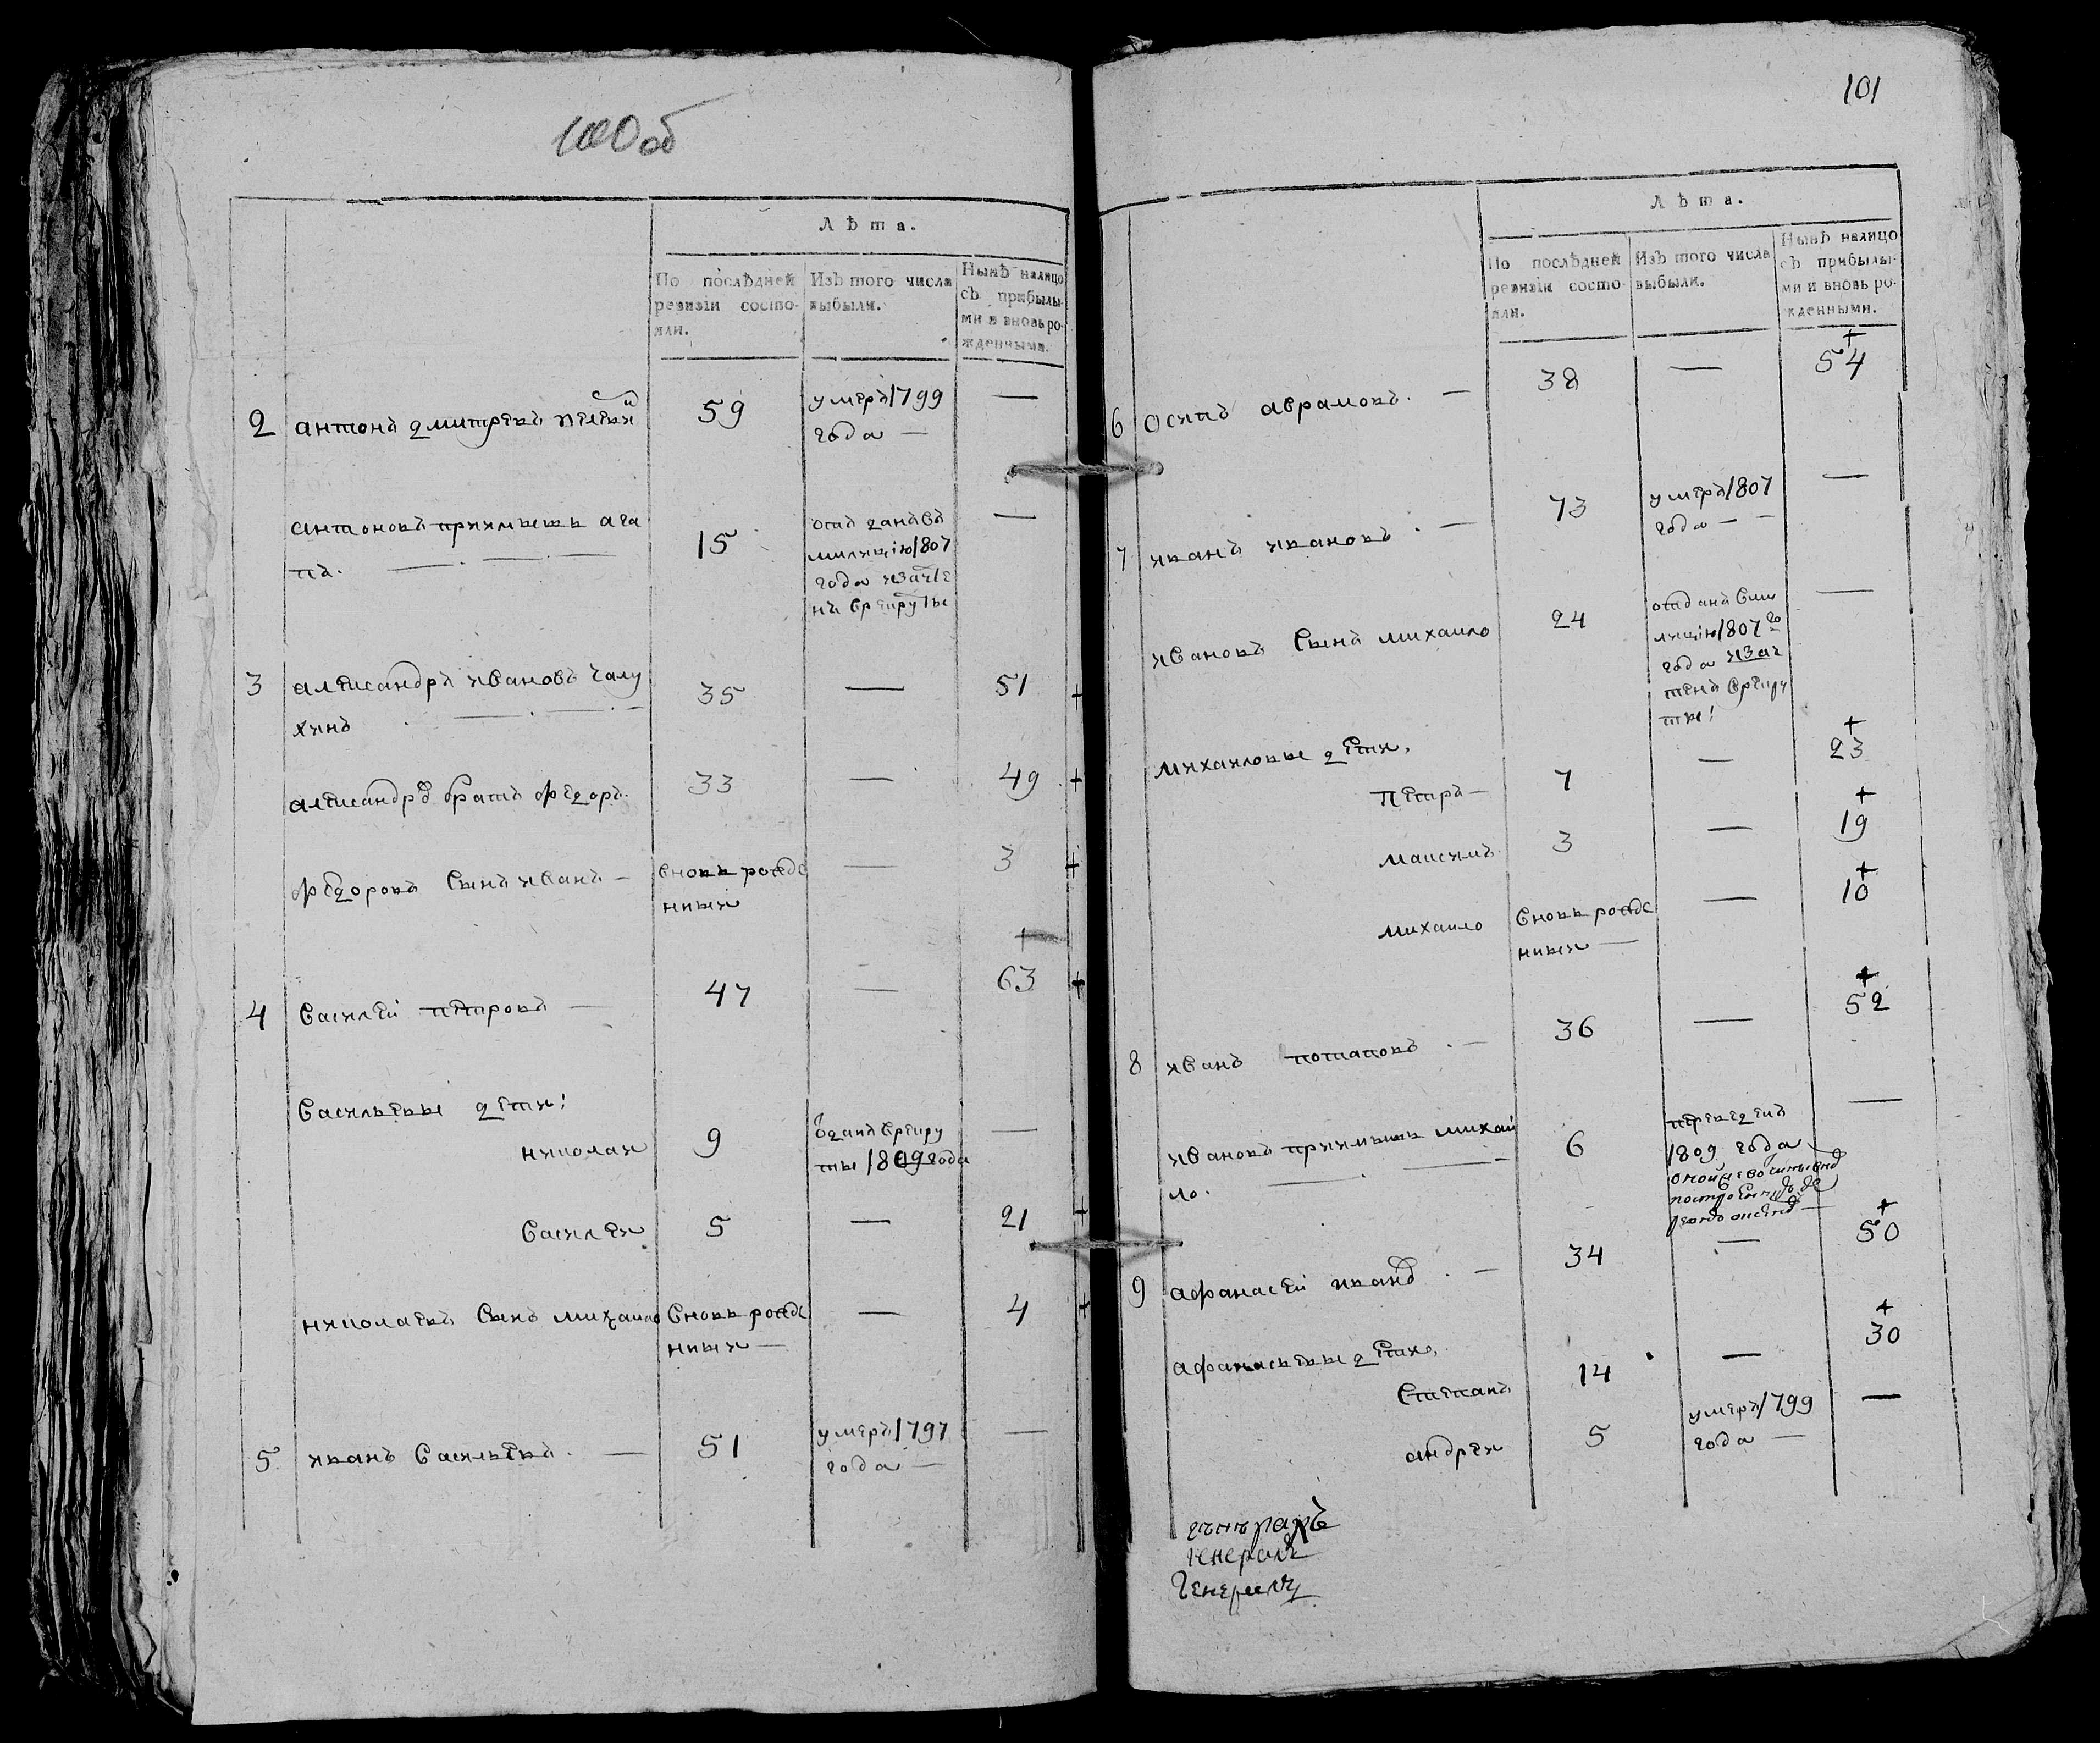 100 об
Лѣта.
По послѣдней
ревизіи состо-
яли.
Изъ того числа
выбыли.
Нынѣ налицо
съ прибылы-
ми и вновь ро-
жденными.
2 антонъ дмитревъ 59 умеръ 1799 —
года —
антоновъ приимышь ага 15 отданъ въ —
пъ. милицію 1807
года изачте
нъ врекруты
3 александръ ивановъ чалу 35 — 51 +
хинъ
александръ братъ федоръ 33 — 49 +
федоровъ сынъ иванъ — вновь рожде — 3 +
нныи
+
4 василей петровъ — 47 — 63 +
васильевы дети:
николаи 9 оданъ врекру —
ты 1809 года
василеи 5 — 21 +
николаевъ сынъ михаило вновь рожде — 4 +
нныи —
5 иванъ васильевъ. — 51 умеръ 1797 —
года —
101
Лѣта.
По послѣдней
ревизіи состо-
яли.
Изъ того числа
выбыли.
Нынѣ налицо
съ прибылы-
ми и вновь ро-
жденными.
+
6 осипъ аврамовъ. — 38 — 54
7 иванъ ивановъ. — 73 умеръ 1807 —
года — —
ивановъ сынъ михаило 24 отданъ вми —
лицію 1807 го
года изач
тенъ врекру
ты:
михаиловы дети, +
петръ — 7 — 23
+
максимъ 3 — 19
+
михаило вновь рожде — 10
нныи —
+
8 иванъ потаповъ. — 36 — 52
ивановъ приимышь михаи 6 переведенъ —
ло. 1809 года
+
9 афанасей ивановъ. — 34 — 50
афанасьевы дети, +
степанъ 14 — 30
андреи 5 умеръ 1799 —
года —
генералъ
генералъ